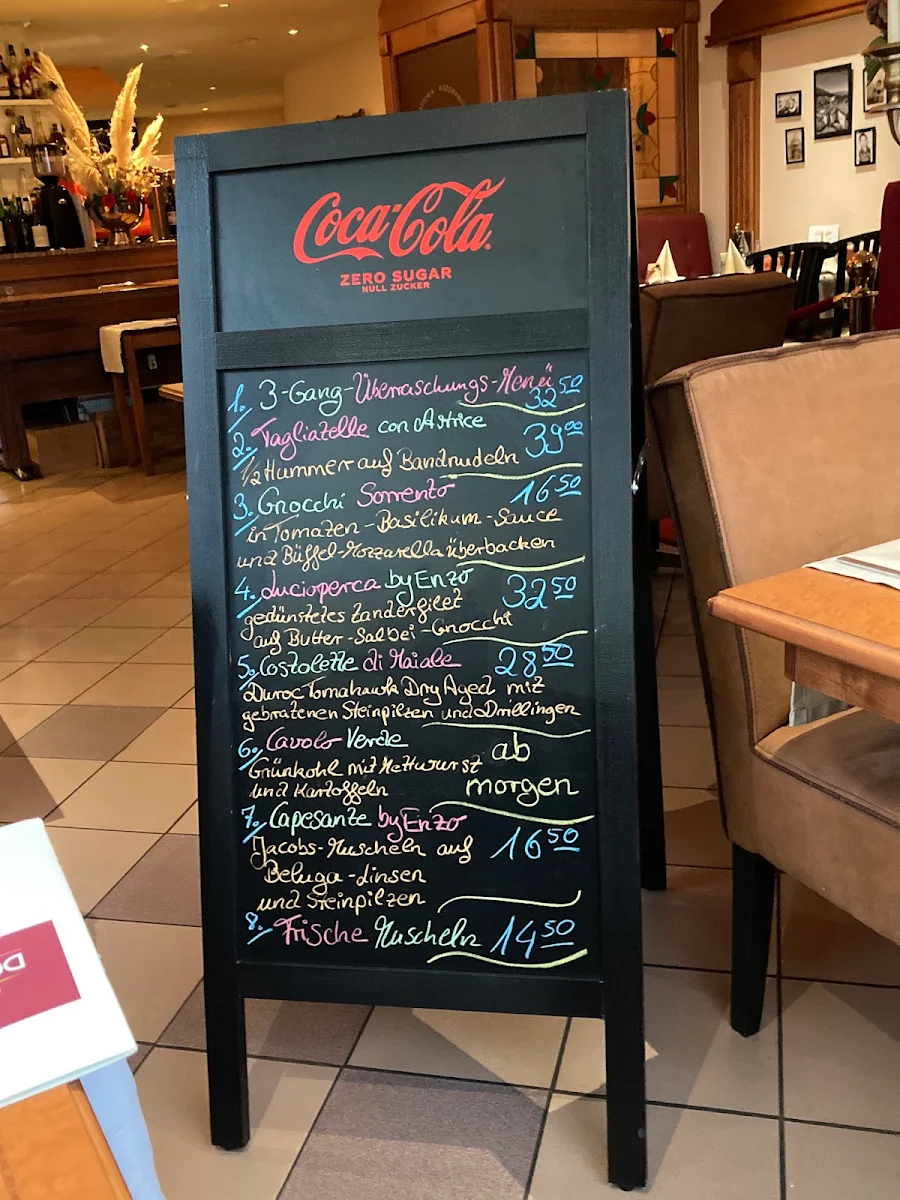 Coca-Cola
ZERO SUGAR
NULL ZUCKER
1. 3-Gang-Überraschungs-Menü
32 50
2. Tagliatelle con Astice
39 00
1/2 Hummer auf Bandnudeln
3. Gnocchi Sorrento 16 50
in Tomaten-Basilikum-Sauce
und Büffel-Mozzarella überbacken
4. Lucioperca by Enzo
32 50
gedünstetes Zanderfilet
auf Butter-Salbei-Gnocchi
5. Costolette di Maiale 28 50
Duroc Tomahawk Dry Aged mit
gebratenen Steinpilzen und Drillingen
6. Cavolo Verde ab
Grünkohl mit Mettwurst
und Kartoffeln morgen
7. Capesante by Enzo
Jacobs-Muscheln auf 16 50
Beluga-Linsen
und Steinpilzen
8. Frische Muscheln 14 50